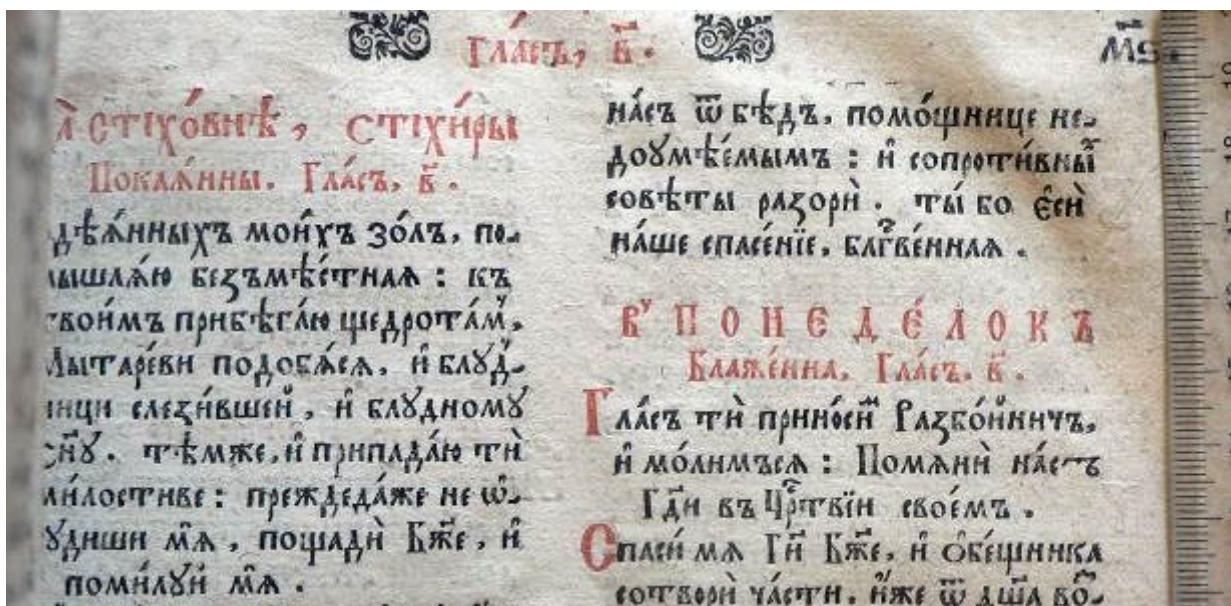 Гла́съ, в҃.
м҃ѕ.
а̀ стїхо́внѣ, стїхи́ры
Покаѧ́нны. Гла́съ, в҃.
дѣѧ́нныхъ мои́хъ зо́лъ, по-
мышлѧ́ю безъмѣ́стнаѧ : къ
твои́мъ прибѣга́ю щедрота́м,
Мытаре́ви подобѧ́сѧ, и҆ блꙋд-
ници слези́вшей, и҆ блꙋ́дномꙋ
сн҃ꙋ. тѣ́мже, и҆ припада́ю ти
ми́лостиве : преждеда́же не ѡ҆-
сꙋдиши мѧ̀, пощадѝ Бж҃е, и҆
поми́лꙋй мѧ̀.
на́съ ѿ бѣ́дъ, помо́щнице не-
доꙋмѣ́емымъ : и҆ сопроти́вныѧ
совѣ́ты разорѝ. ты́ бо є҆сѝ
на́ше спасе́нїе, блг҃ве́ннаѧ.
в' понеде́локъ
Блаже́нна. Гла́съ. в҃.
Гла́съ тѝ прино́сим Разбо́йничъ,
и҆ мо́лимъсѧ : Помѧнѝ на́съ
Гд҃и въ Црⷭ҇твїи свое́мъ.
Спаси́ мѧ Гд҃и Бж҃е, и҆ ѻ҆бе́щника
сотворѝ ча́сти, и҆́же ѿ дш҃а во-